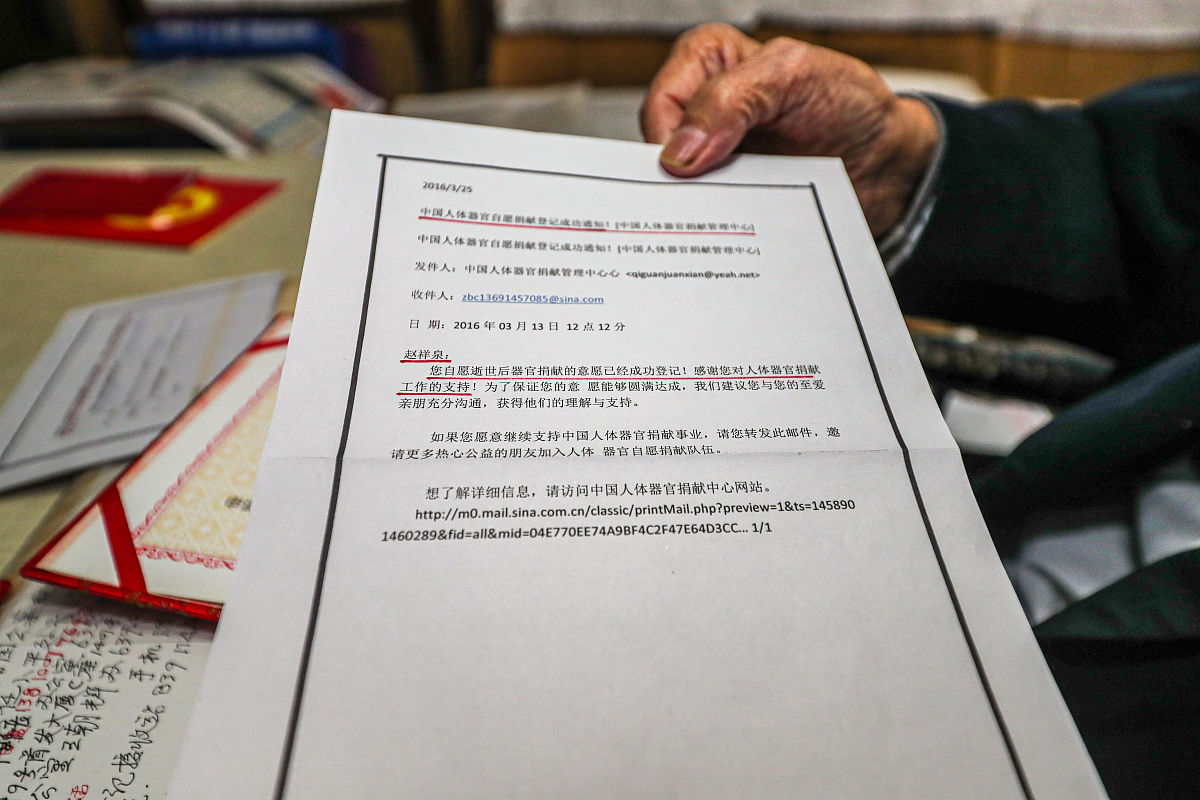 2016/3/25
中国人体器官自愿捐献登记成功通知！[中国人体器官捐献管理中心]
中国人体器官自愿捐献登记成功通知！[中国人体器官捐献管理中心]
发件人：中国人体器官捐献管理中心心 <qiguanjuanxian@yeah.net>
收件人：zbc13691457085@sina.com
日 期：2016 年 03 月 13 日 12 点 12 分
赵祥泉：
您自愿逝世后器官捐献的意愿已经成功登记！感谢您对人体器官捐献
工作的支持！为了保证您的意 愿能够圆满达成，我们建议您与您的至爱
亲朋充分沟通，获得他们的理解与支持。
如果您愿意继续支持中国人体器官捐献事业，请您转发此邮件，邀
请更多热心公益的朋友加入人体 器官自愿捐献队伍。
想了解详细信息，请访问中国人体器官捐献中心网站。
http://m0.mail.sina.com.cn/classic/printMail.php?preview=1&ts=145890
1460289&fid=all&mid=04E770EE74A9BF4C2F47E64D3CC... 1/1
手机